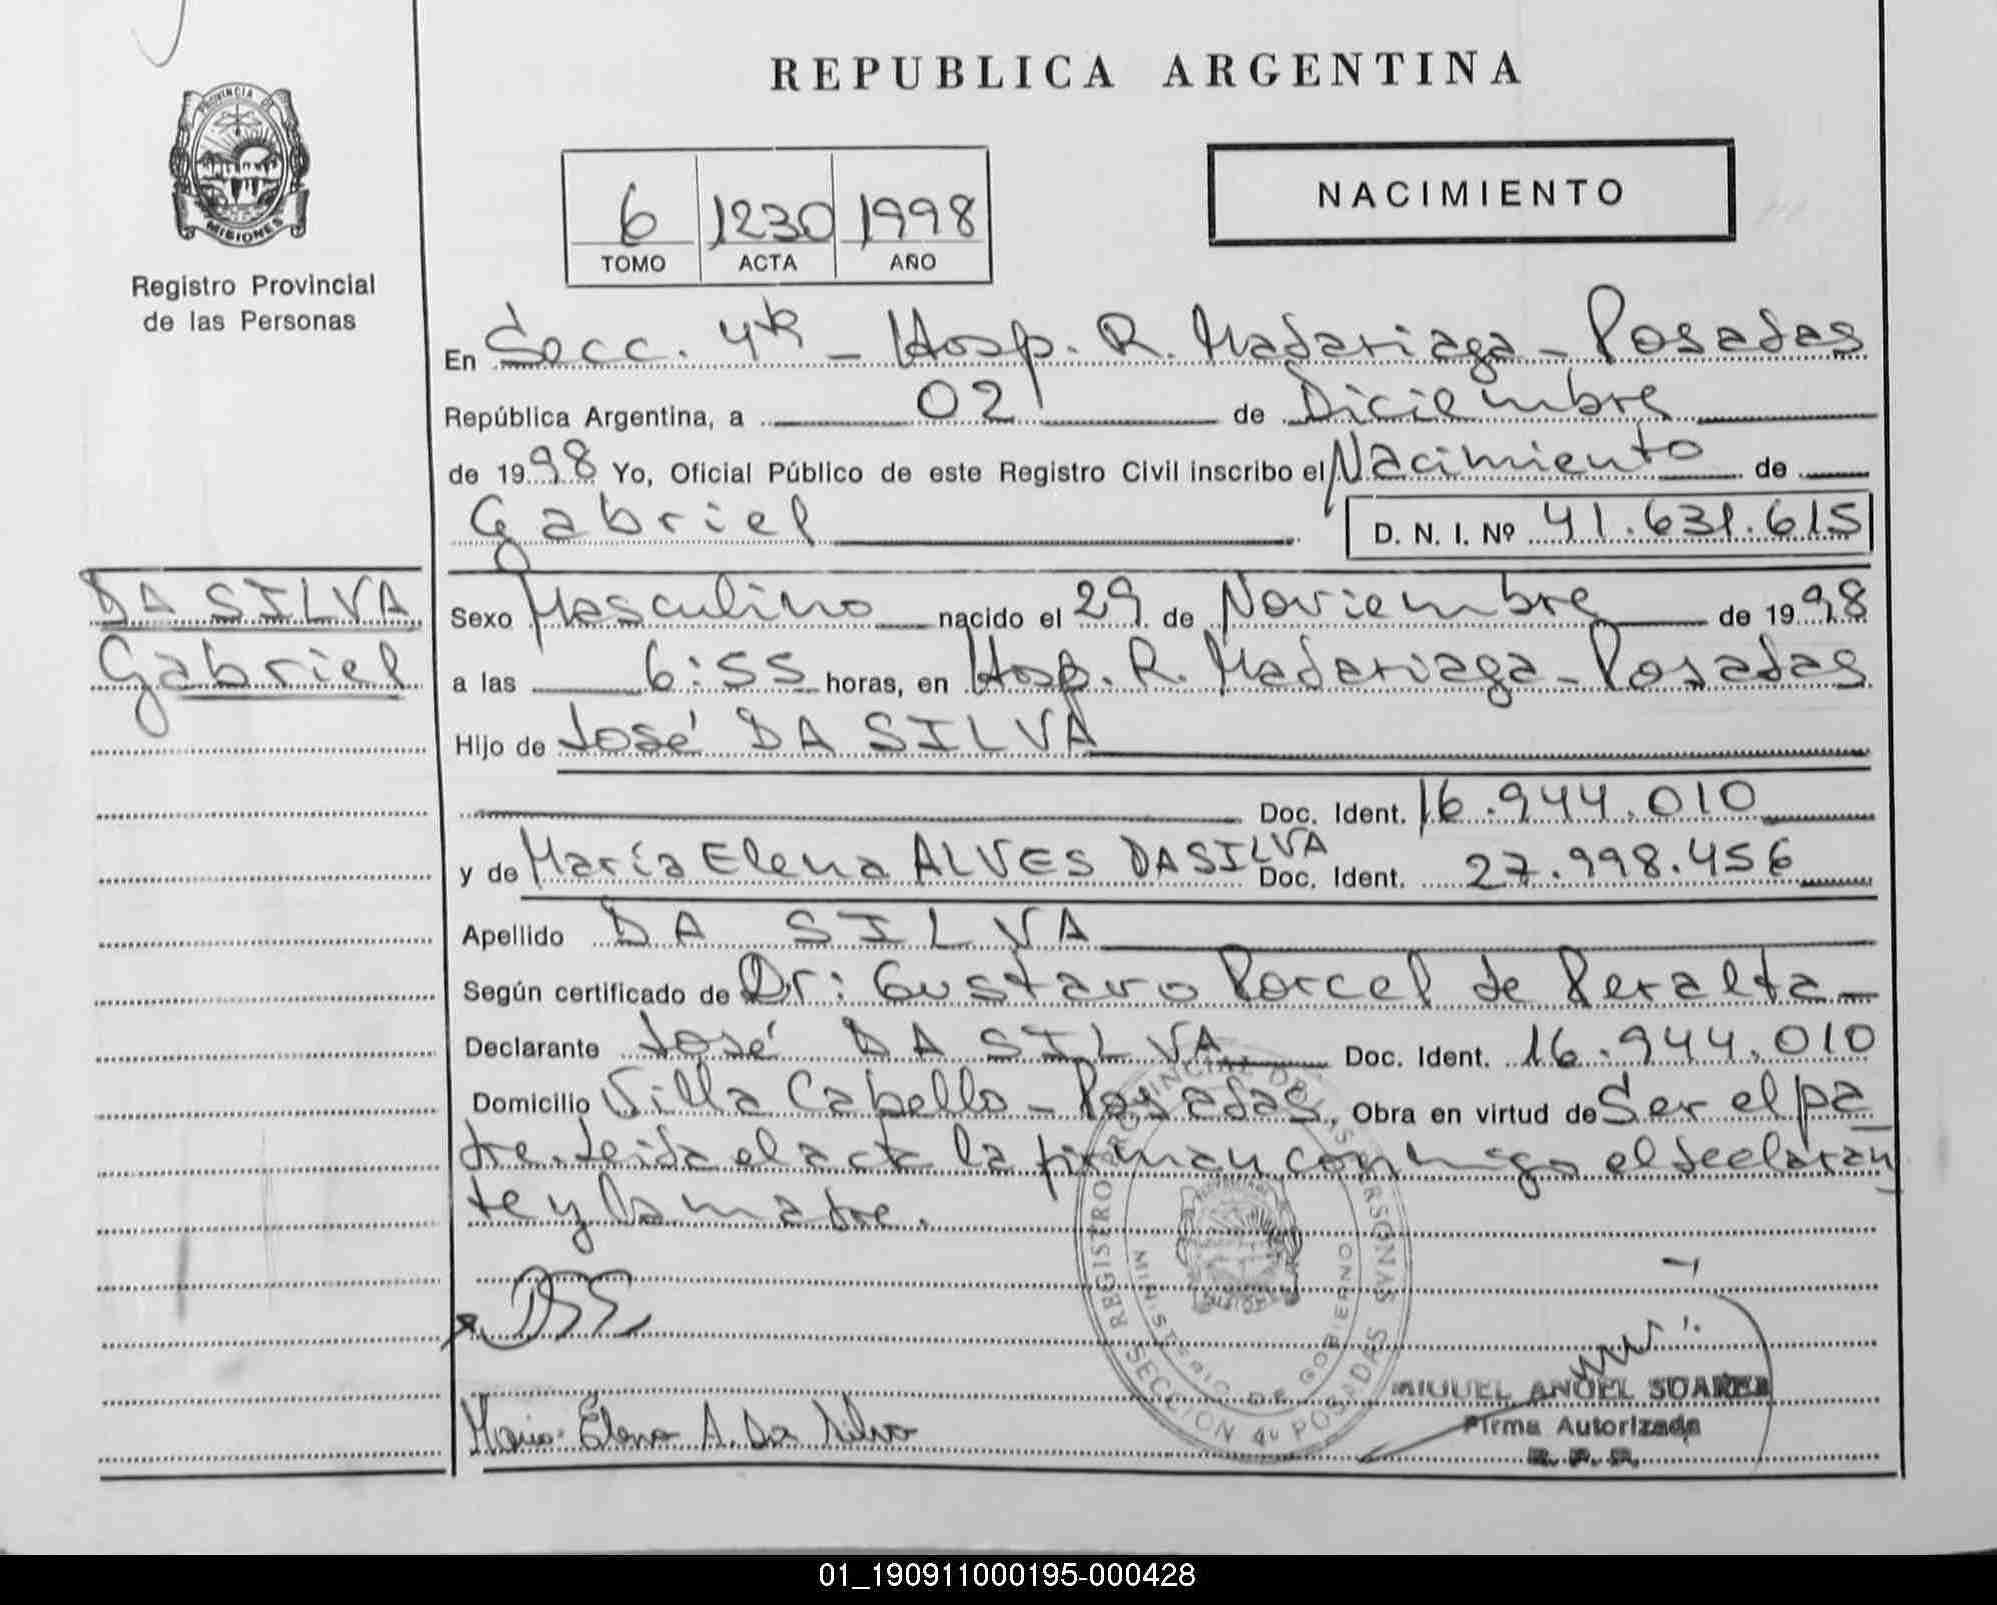 REPUBLICA ARGENTINA
PROVINCIA DE
MISIONES
Registro Provincial
de las Personas
6 1230 1998
TOMO ACTA AÑO
NACIMIENTO
En Secc. 4ta - Hosp. R. Madariaga - Posadas
República Argentina, a 02 de Diciembre
de 1998 Yo, Oficial Público de este Registro Civil inscribo el Nacimiento de
Gabriel D. N. I. Nº 41.631.615
DA SILVA
Gabriel
Sexo Masculino nacido el 29 de Noviembre de 1998
a las 6:55 horas, en Hosp. R. Madariaga - Posadas
Hijo de José DA SILVA
Doc. Ident. 16.944.010
y de María Elena ALVES DA SILVA Doc. Ident. 27.998.456
Apellido DA SILVA
Según certificado de Dr: Gustavo Porcel de Peralta -
Declarante José DA SILVA Doc. Ident. 16.944.010
Domicilio Villa Cabello - Posadas, Obra en virtud de Ser el pa
dre. Leida el acta la firman conmigo el declaran
te y la madre.
REGISTRO PROVINCIAL DE LAS PERSONAS
SECCION 4ª POSADAS
MINISTERIO DE GOBIERNO
MIGUEL ANGEL SUAREZ
Firma Autorizada
R. P. P.
Maria Elena A. Da Silva
01_190911000195-000428